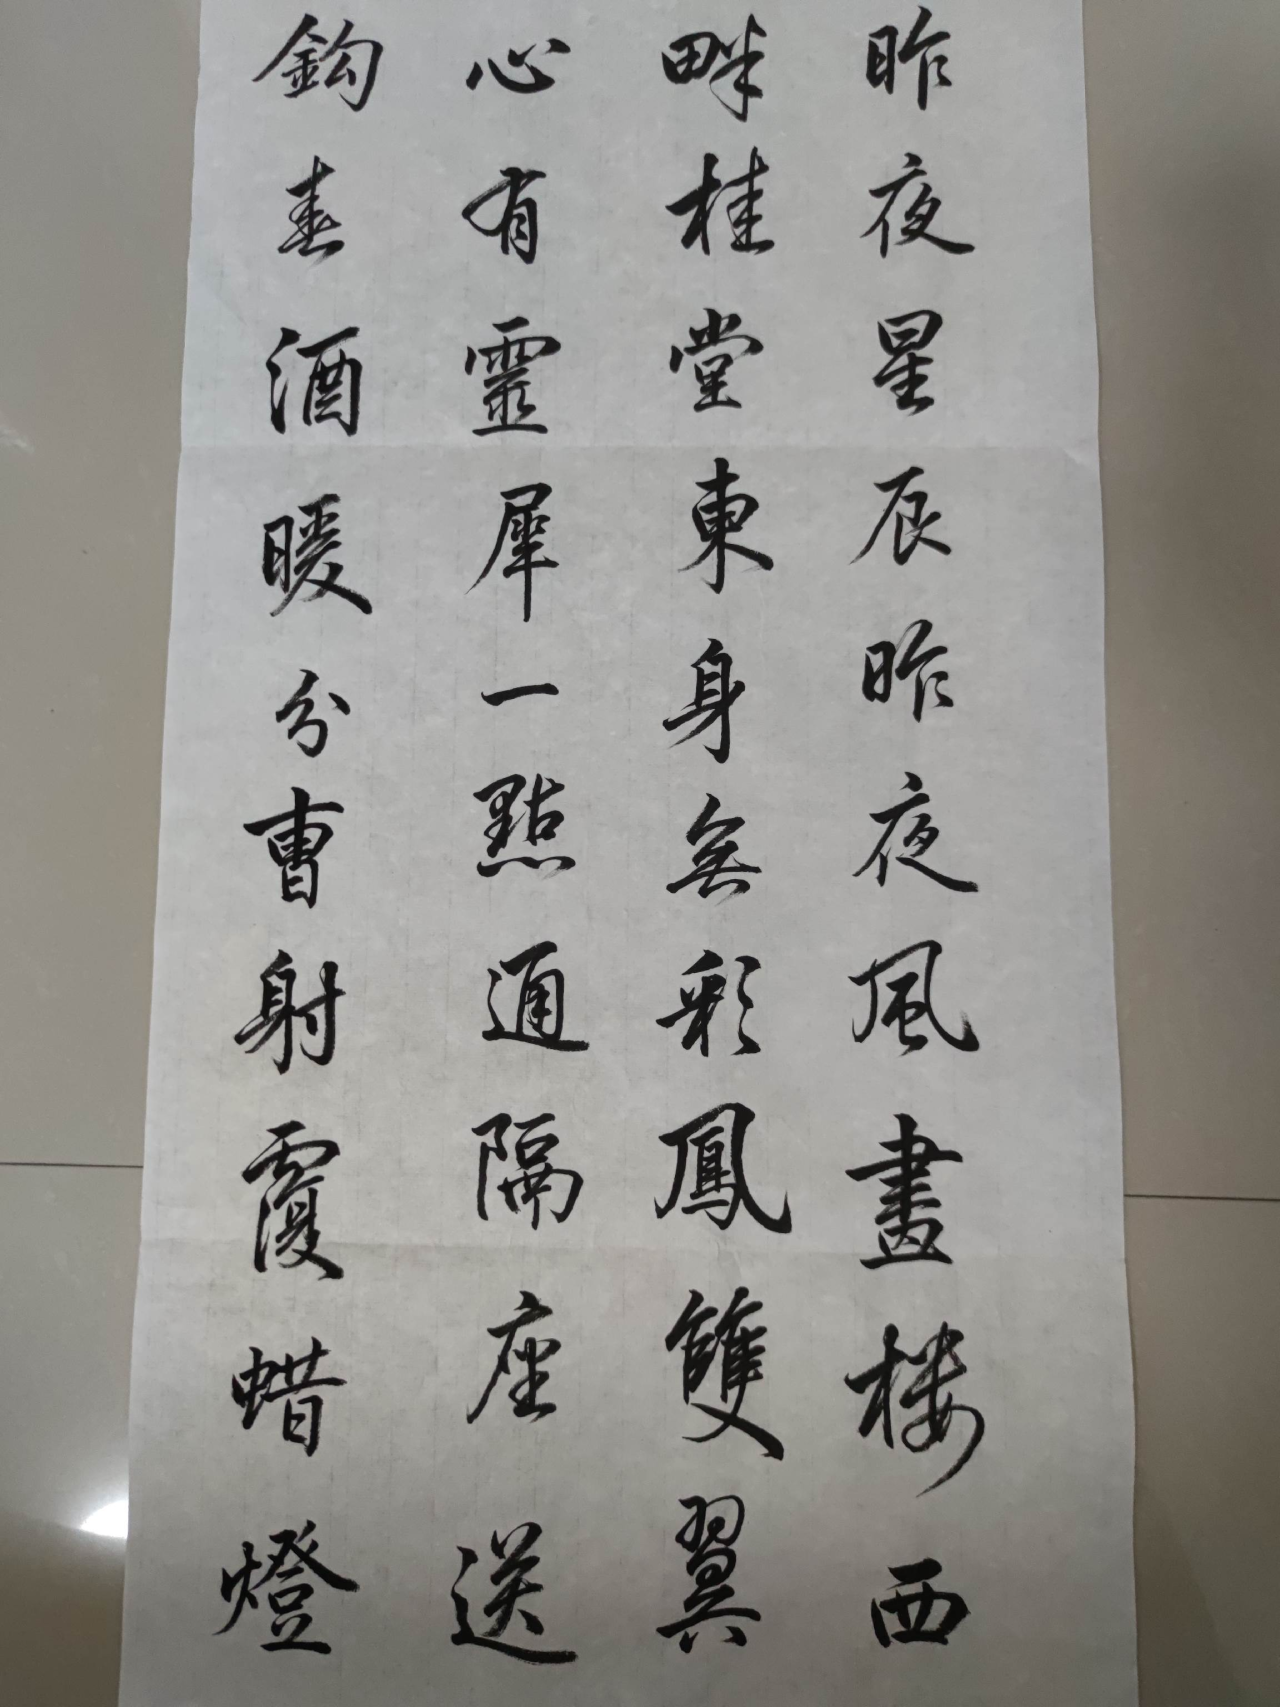 昨夜星辰昨夜風畫楼西
畔桂堂東身無彩鳳雙翼
心有靈犀一點通隔座送
鈎春酒暖分曹射覆蜡燈